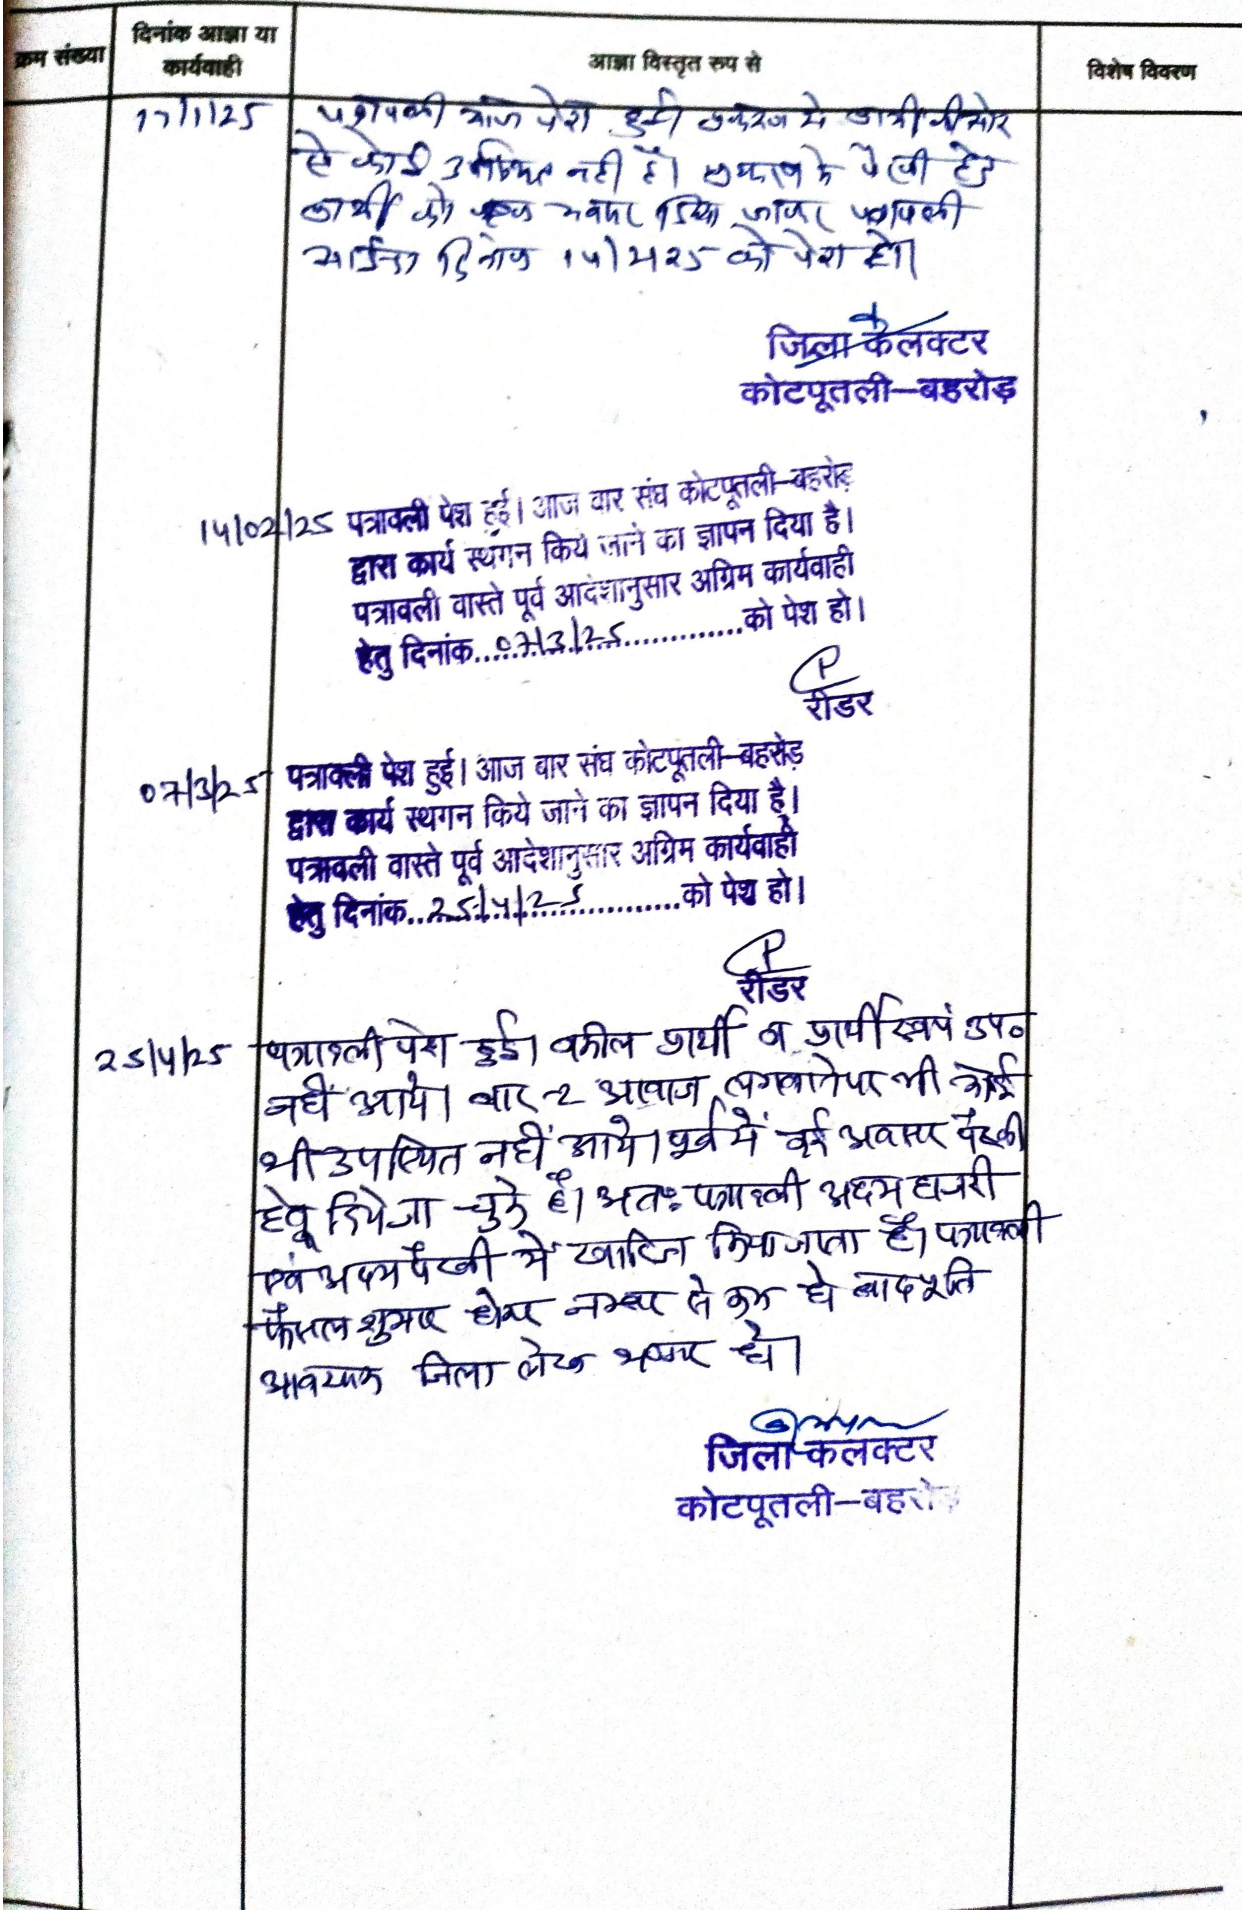 क्रम संख्या
दिनांक आज्ञा या
कार्यवाही
आज्ञा विस्तृत रुप से
विशेष विवरण
17/1/25
पत्रावली आज पेश हुई। प्रकरण में प्रार्थी की ओर
से कोई उपस्थित नहीं है। प्रकरण के पैरवी हेतु
प्रार्थी को एक अवसर दिया जाकर पत्रावली
आईन्दा दिनांक 14/2/25 को पेश हो।
जिला कैलक्टर
कोटपूतली-बहरोड़
14/02/25 पत्रावली पेश हुई। आज वार संघ कोटपूतली-बहरोड़
द्वारा कार्य स्थगन किये जाने का ज्ञापन दिया है।
पत्रावली वास्ते पूर्व आदेशानुसार अग्रिम कार्यवाही
हेतु दिनांक..07/3/25..............को पेश हो।
रीडर
07/3/25 पत्रावली पेश हुई। आज वार संघ कोटपूतली-बहरोड़
द्वारा कार्य स्थगन किये जाने का ज्ञापन दिया है।
पत्रावली वास्ते पूर्व आदेशानुसार अग्रिम कार्यवाही
हेतु दिनांक..25/4/25..............को पेश हो।
रीडर
25/4/25 पत्रावली पेश हुई। वकील प्रार्थी व प्रार्थी स्वयं उप०
नहीं आये। बार-2 आवाज लगवाने पर भी कोई
भी उपस्थित नहीं आये। पूर्व में कई अवसर पैरवी
हेतु दिये जा चुके है। अतः पत्रावली अदम हाजरी
एवं अदम पैरवी में खारिज किया जाता है। पत्रावली
फैसल शुमार होकर नम्बर से कम हो बाद पूर्ति
आवश्यक जिला लेख भण्डार हो।
जिला कलक्टर
कोटपूतली-बहरोड़